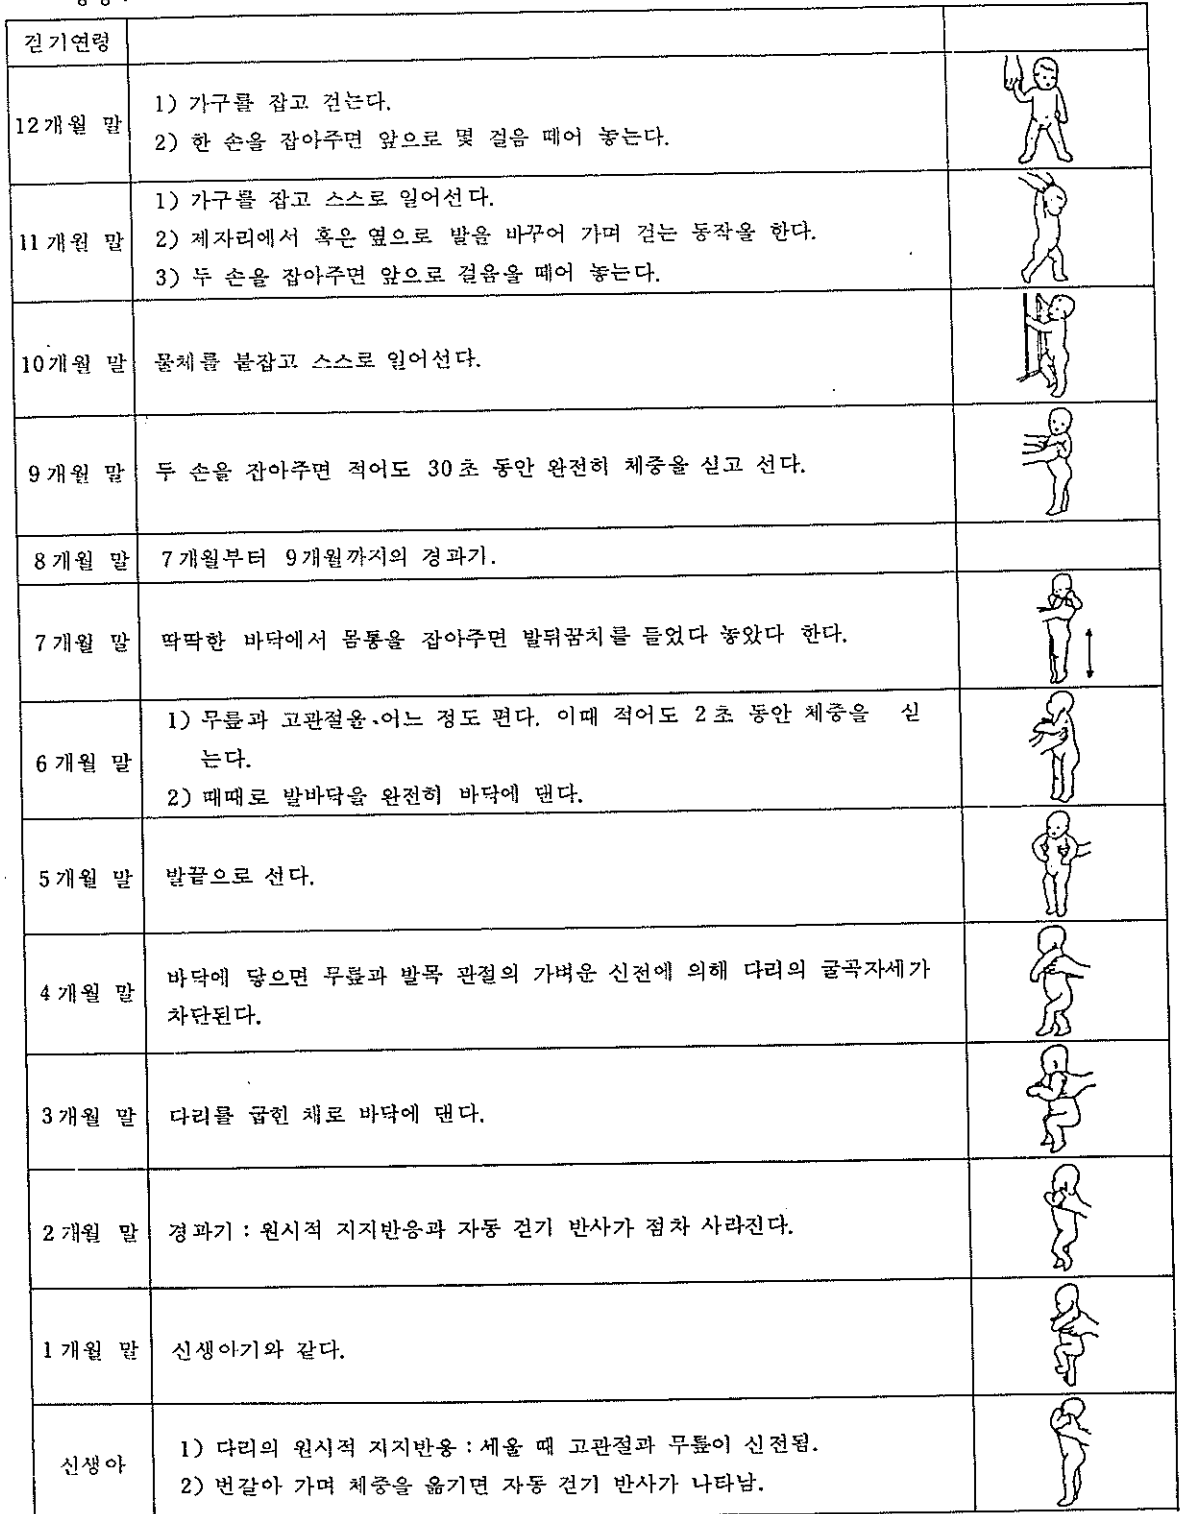 걷기연령
12개월 말
1) 가구를 잡고 걷는다.
2) 한 손을 잡아주면 앞으로 몇 걸음 떼어 놓는다.
11개월 말
1) 가구를 잡고 스스로 일어선다.
2) 제자리에서 혹은 옆으로 발을 바꾸어 가며 걷는 동작을 한다.
3) 두 손을 잡아주면 앞으로 걸음을 떼어 놓는다.
10개월 말
물체를 붙잡고 스스로 일어선다.
9개월 말
두 손을 잡아주면 적어도 30초 동안 완전히 체중을 싣고 선다.
8개월 말
7개월부터 9개월까지의 경과기.
7개월 말
딱딱한 바닥에서 몸통을 잡아주면 발뒤꿈치를 들었다 놓았다 한다.
6개월 말
1) 무릎과 고관절을 어느 정도 편다. 이때 적어도 2초 동안 체중을 싣
는다.
2) 때때로 발바닥을 완전히 바닥에 댄다.
5개월 말
발끝으로 선다.
4개월 말
바닥에 닿으면 무릎과 발목 관절의 가벼운 신전에 의해 다리의 굴곡자세가
차단된다.
3개월 말
다리를 굽힌 채로 바닥에 댄다.
2개월 말
경과기 : 원시적 지지반응과 자동 걷기 반사가 점차 사라진다.
1개월 말
신생아기와 같다.
신생아
1) 다리의 원시적 지지반응 : 세울 때 고관절과 무릎이 신전됨.
2) 번갈아 가며 체중을 옮기면 자동 걷기 반사가 나타남.